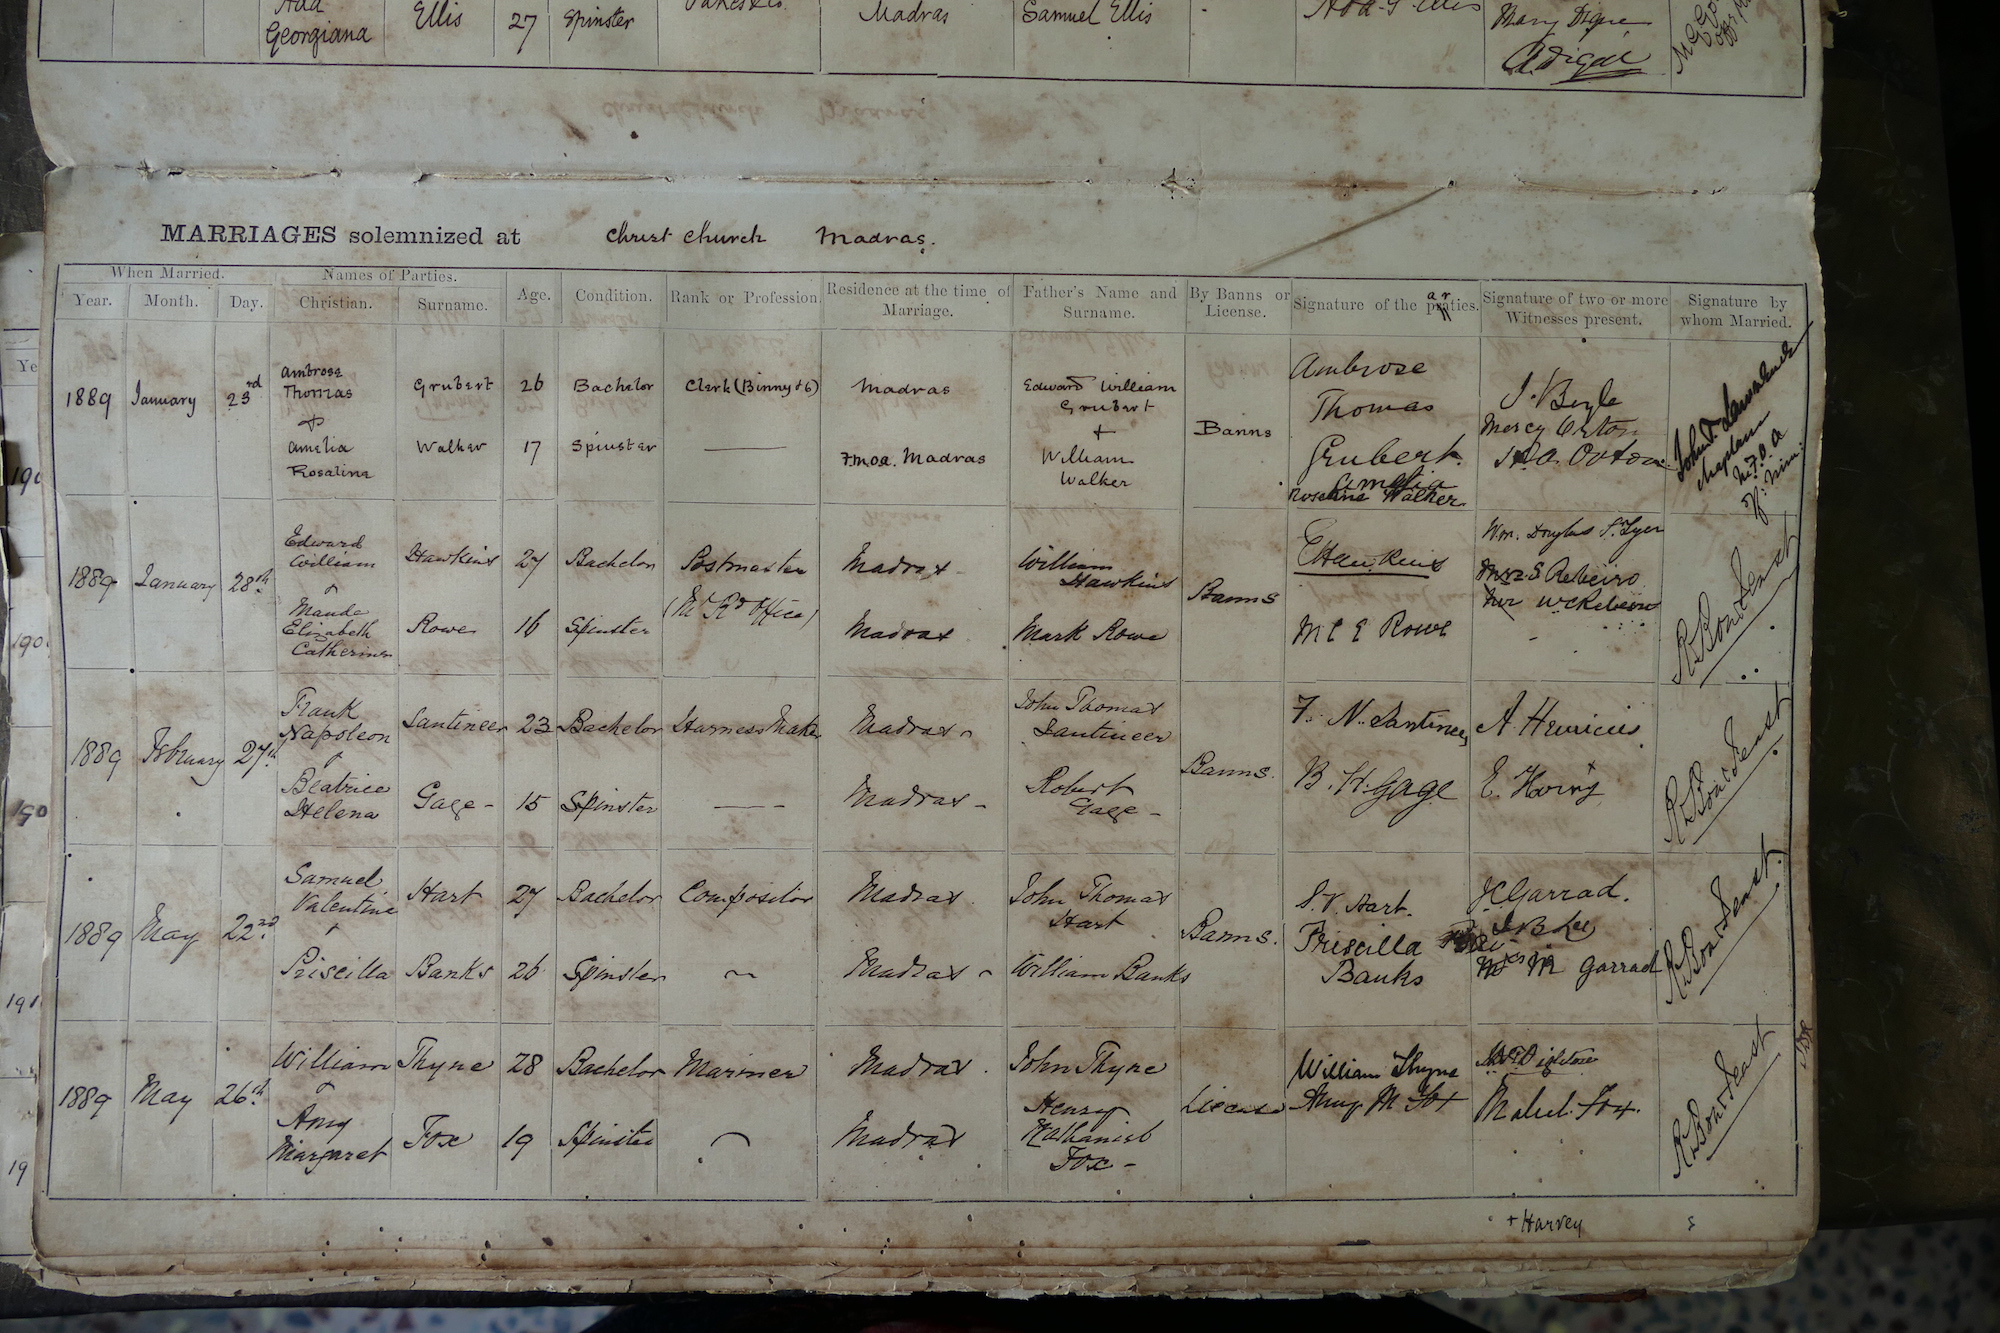 Georgiana Ellis 27 Spinster Madras Samuel Ellis
MARRIAGES solemnized at Christ Church Madras.
When Married. Names of Parties.
Year. Month. Day. Christian. Surname. Age. Condition. Rank or Profession. Residence at the time of Marriage. Father's Name and Surname. By Banns or License. Signature of the parties. Signature of two or more Witnesses present. Signature by whom Married.
1889 January 23rd Ambrose Thomas Grubert 26 Bachelor Clerk (Binny & Co) Madras Edward William Grubert Banns Ambrose Thomas Grubert.
+ Amelia Rosalina Walker 17 Spinster — F.M.O.A. Madras + William Walker Amelia Roseline Walker
J. Boyle
Mercy Orton
Chaplain
1889 January 28th Edward William Hawkins 27 Bachelor Postmaster Madras William Hawkins Banns E Hawkins
Maude Elizabeth Catherine Rowe 16 Spinster (Mt Rd Office) Madras Mark Rowe M C E Rowe
Mrs S Rebeiro
1889 February 27th Frank Napoleon Santineer 23 Bachelor Harness Maker Madras John Thomas Santineer Banns. F. N. Santineer
Beatrice Helena Gage - 15 Spinster — Madras - Robert Gage - B. H. Gage
1889 May 22nd Samuel Valentine Hart 27 Bachelor Compositor Madras John Thomas Hart Banns. S. V. Hart. J C Garrad.
Priscilla Banks 26 Spinster Madras William Banks Priscilla Banks M Garrad
1889 May 26th William Thyne 28 Bachelor Mariner Madras. John Thyne License William Thyne
Amy Margaret Fox 19 Spinster Madras Henry Nathaniel Fox - Amy M Fox Mabel Fox.
+ Harvey